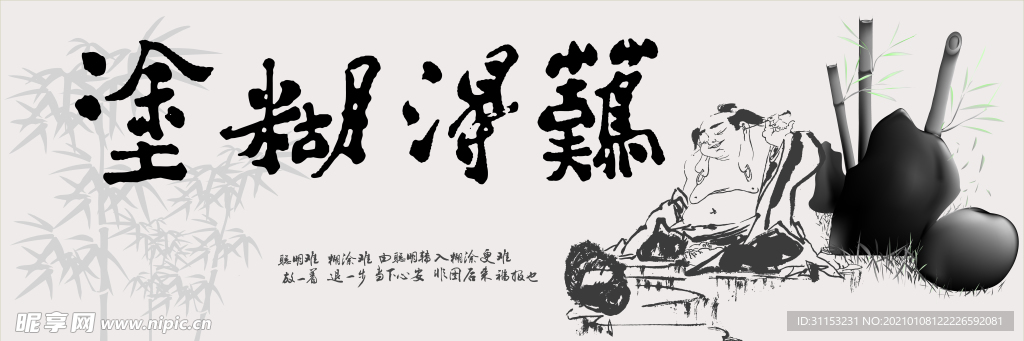 難得糊塗
聪明难 糊涂难 由聪明转入糊涂更难
放一着 退一步 当下心安 非图后来福报也
昵享网 www.nipic.cn
ID:31153231 NO:20210108122226592081